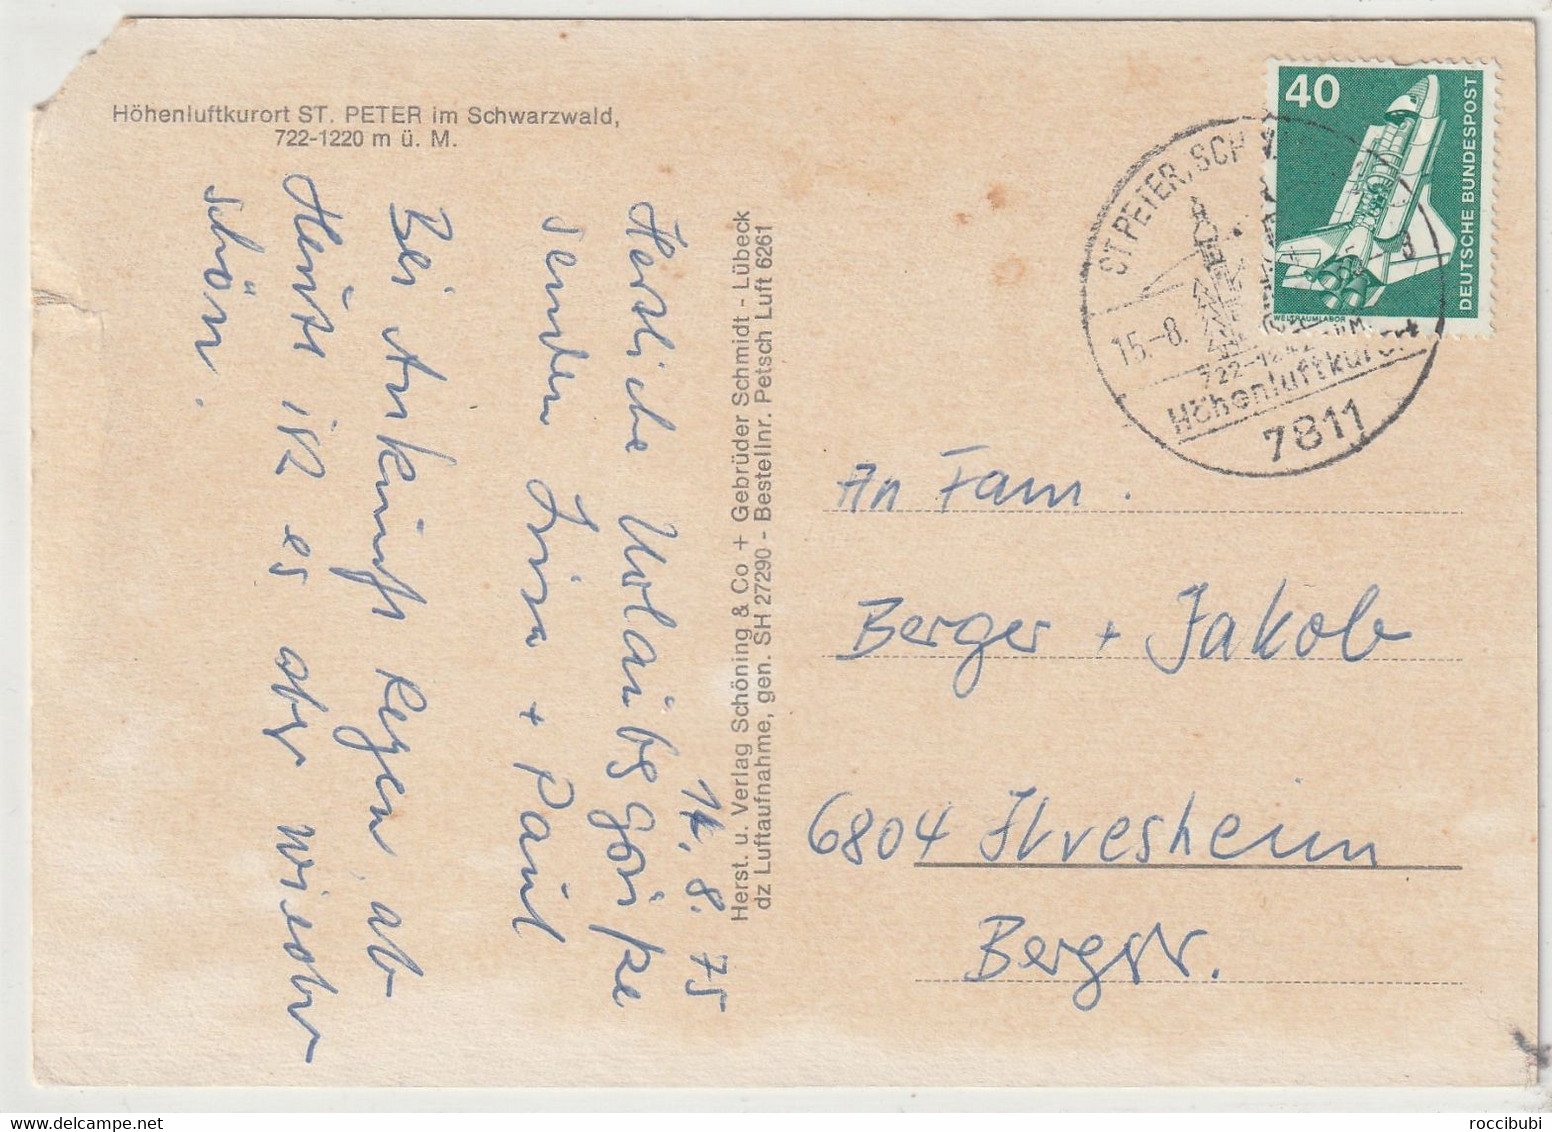 Höhenluftkurort ST. PETER im Schwarzwald,
722-1220 m ü. M.
14. 8. 75
Herzliche Urlaubsgrüße
senden Luise + Paul
Bei Ankunft Regen ab
Heute ist es aber wieder
schön.
Herst. u. Verlag Schöning & Co + Gebrüder Schmidt - Lübeck
dz Luftaufnahme, gen. SH 27290 - Bestellnr. Petsch Luft 6261
40
DEUTSCHE BUNDESPOST
WELTRAUMLABOR
ST. PETER, SCH
15.-8.
722-12
Höhenluftkuro
7811
An Fam.
Berger + Jakob
6804 Ilvesheim
Bergstr.
roccibubi